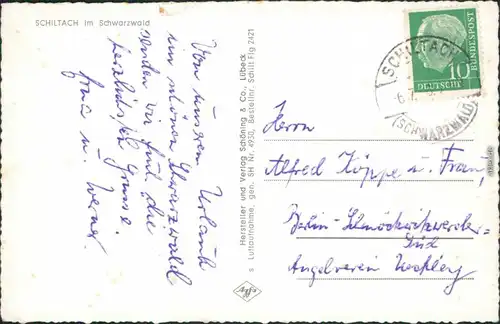 SCHILTACH im Schwarzwald
Von unserem Urlaub
im schönen Schwarzwald
senden wir Euch die
herzlichsten Grüsse.
u. Werner
Hersteller und Verlag Schöning & Co., Lübeck
s Luftaufnahme, gen. SH Nr. 4250, Bestellnr. Schilt Flg 2421
DEUTSCHE BUNDESPOST
10
SCHILTACH
(SCHWARZWALD)
Herrn
Alfred Köppe u. Frau
Berlin-Schmöckwitzwerder-
Süd
Angelverein